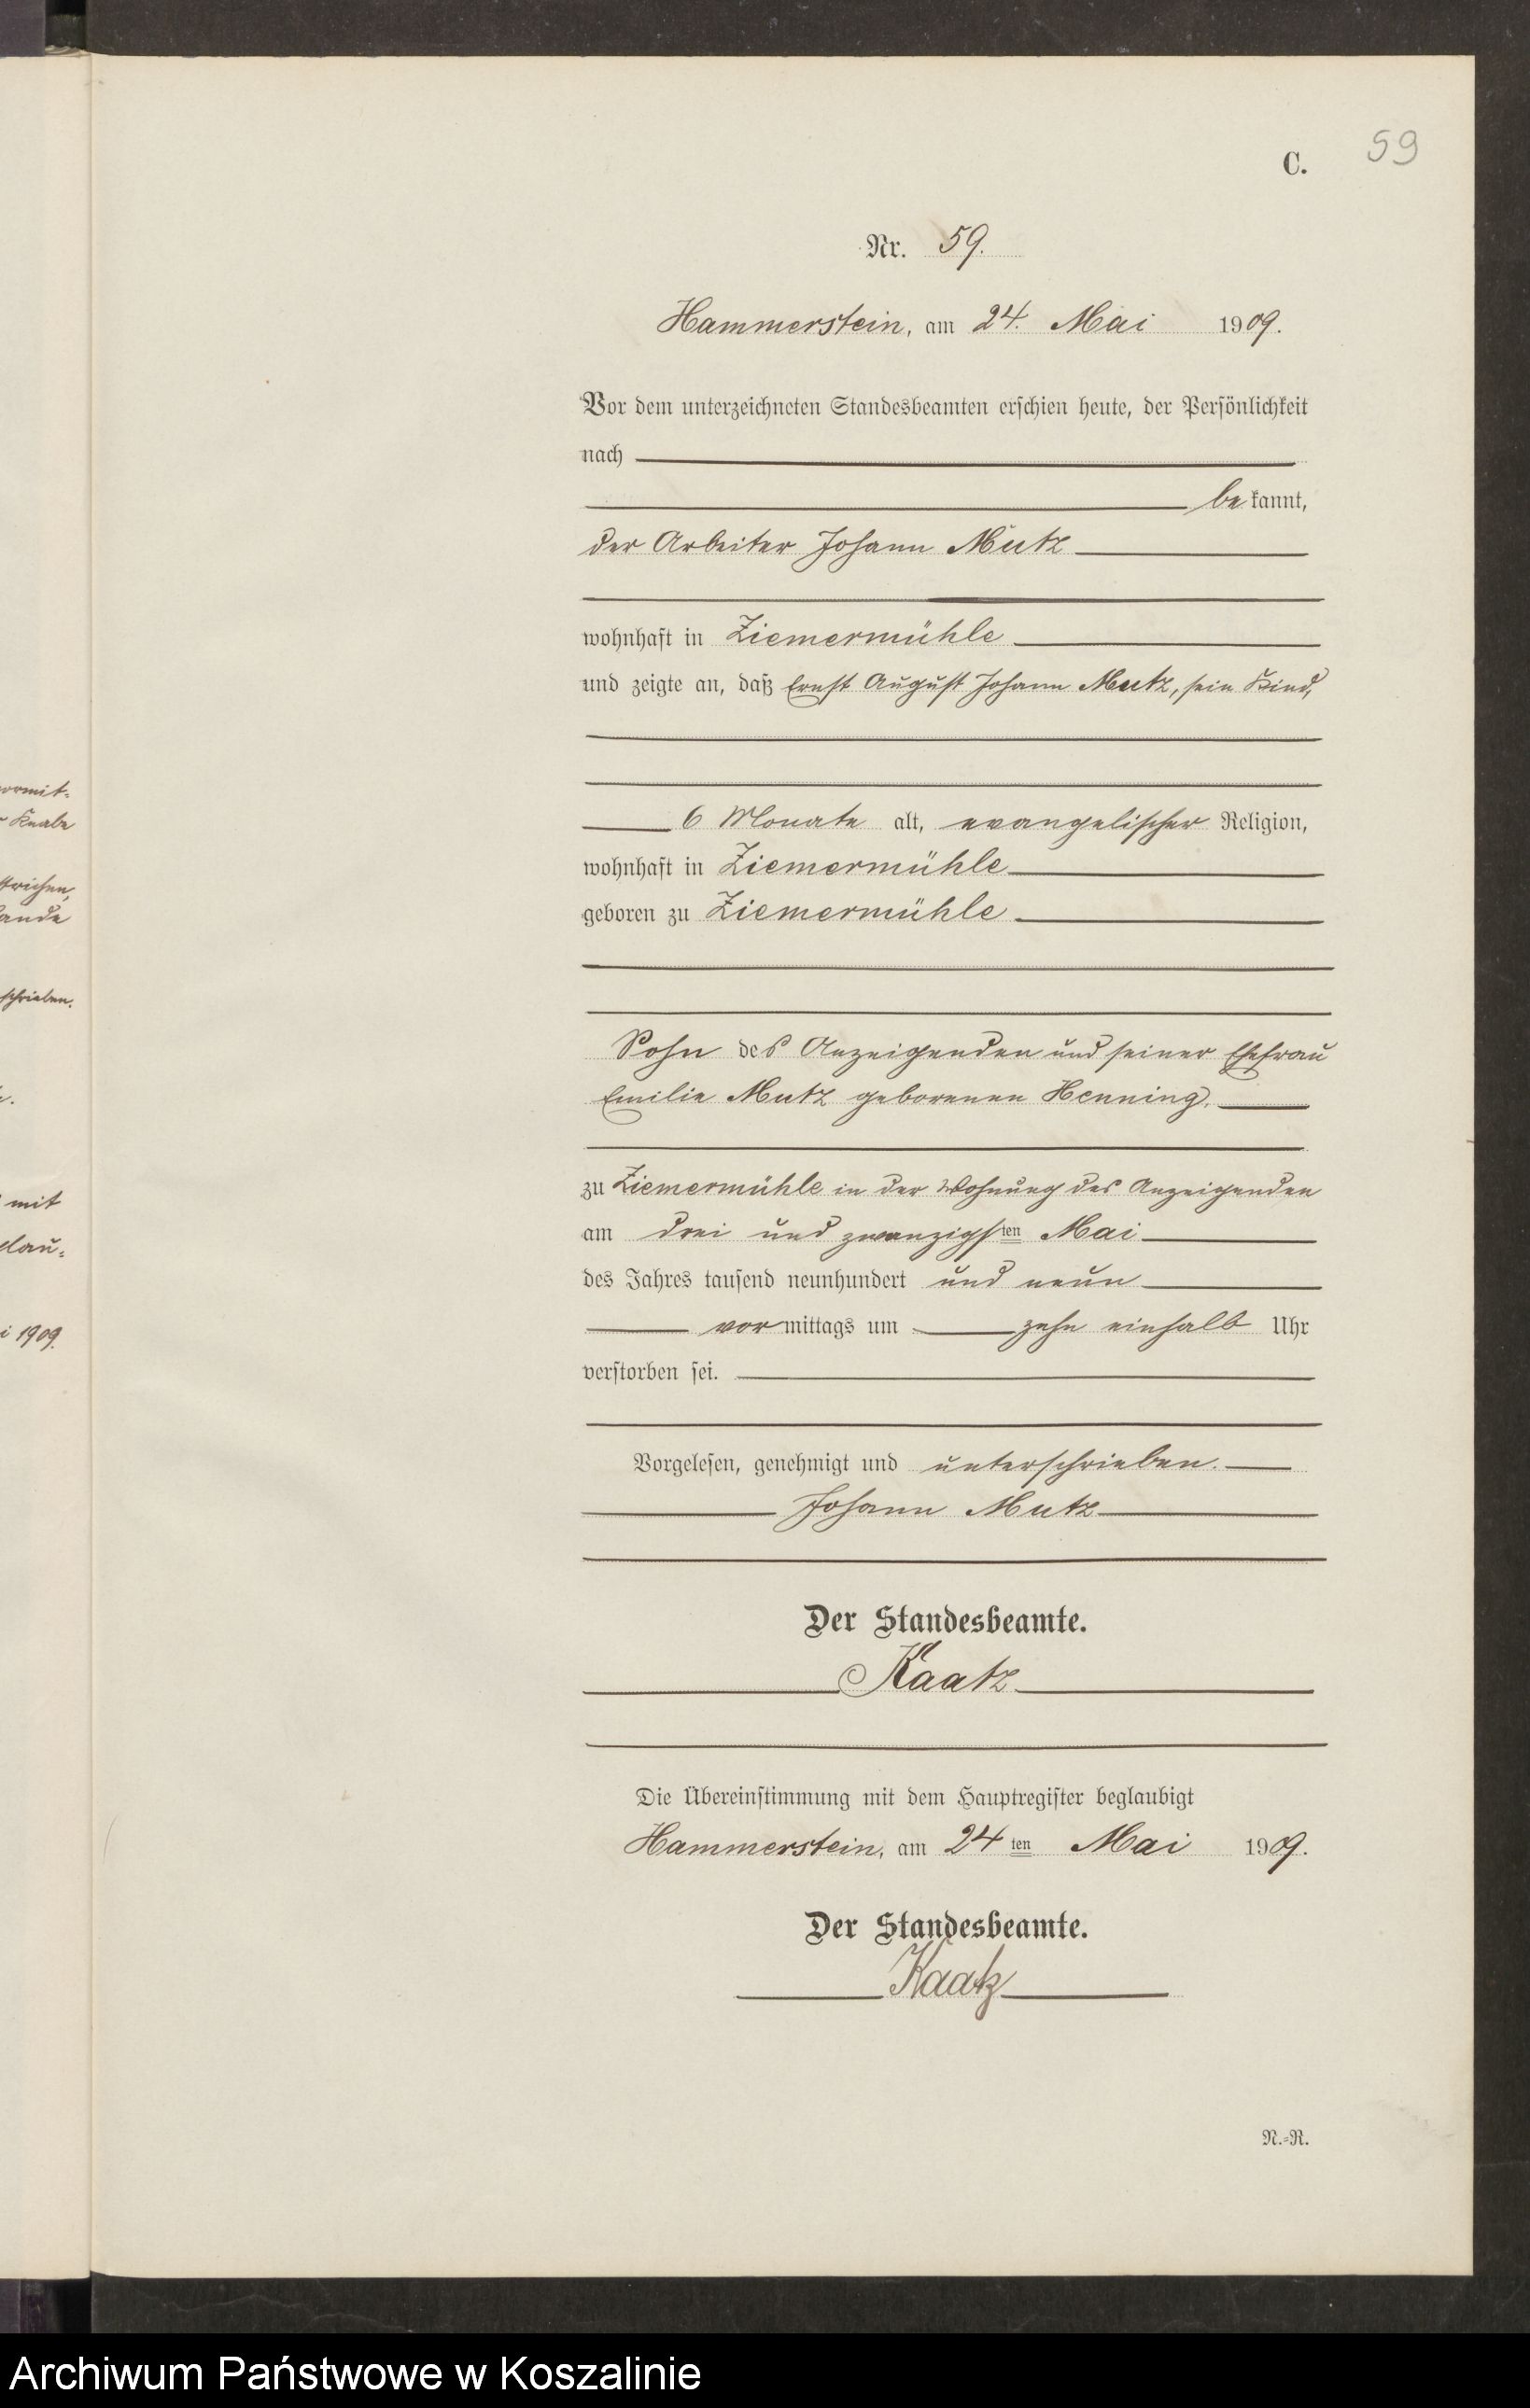 59
C.
Nr. 59.
Hammerstein, am 24. Mai 1909.
Vor dem unterzeichneten Standesbeamten erschien heute, der Persönlichkeit
nach
bekannt,
der Arbeiter Johann Mutz
wohnhaft in Ziemermühle
und zeigte an, daß Ernst August Johann Mutz, sein Kind,
6 Monate alt, evangelischer Religion,
wohnhaft in Ziemermühle
geboren zu Ziemermühle
Sohn des Anzeigenden und seiner Ehefrau
Emilie Mutz geborenen Henning.
zu Ziemermühle in der Wohnung des Anzeigenden
am drei und zwanzigsten Mai
des Jahres tausend neunhundert und neun
vormittags um zehn einhalb Uhr
verstorben sei.
Vorgelesen, genehmigt und unterschrieben.
Johann Mutz
Der Standesbeamte.
Kaatz
Die Übereinstimmung mit dem Hauptregister beglaubigt
Hammerstein, am 24ten Mai 1909.
Der Standesbeamte.
Kaatz
N.=R.
vormit=
Knabe
schrieben.
mit
i 1909.
Archiwum Państwowe w Koszalinie